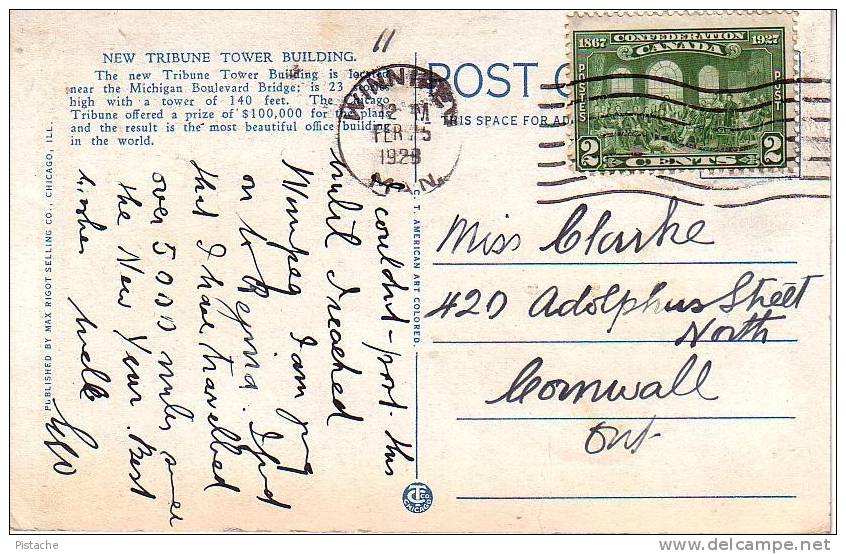 NEW TRIBUNE TOWER BUILDING.
The new Tribune Tower Building is located
near the Michigan Boulevard Bridge; is 23 stories
high with a tower of 140 feet. The Chicago
Tribune offered a prize of $100,000 for the plans
and the result is the most beautiful office building
in the world.
PUBLISHED BY MAX RIGOT SELLING CO., CHICAGO, ILL.
C. T. AMERICAN ART COLORED.
POST C
THIS SPACE FOR AD
WINNIPEG
12 M
FEB 25
1928
MAN.
1867 CONFEDERATION 1927
CANADA
POSTES
POST
2 CENTS 2
11
I couldnt post this
until I reached
Winnipeg I am
on to Regina. I find
that I have travelled
over 5000 miles since
the New Year. Best
wishes
Miss Clarke
420 Adolphus Street
North
Cornwall
Ont
CT CO
CHICAGO
Pistache
www.delcampe.net